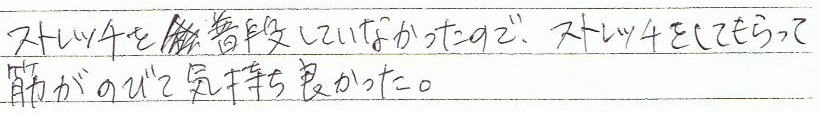 ストレッチを普段していなかったので、ストレッチをしてもらって
筋がのびて気持ち良かった。